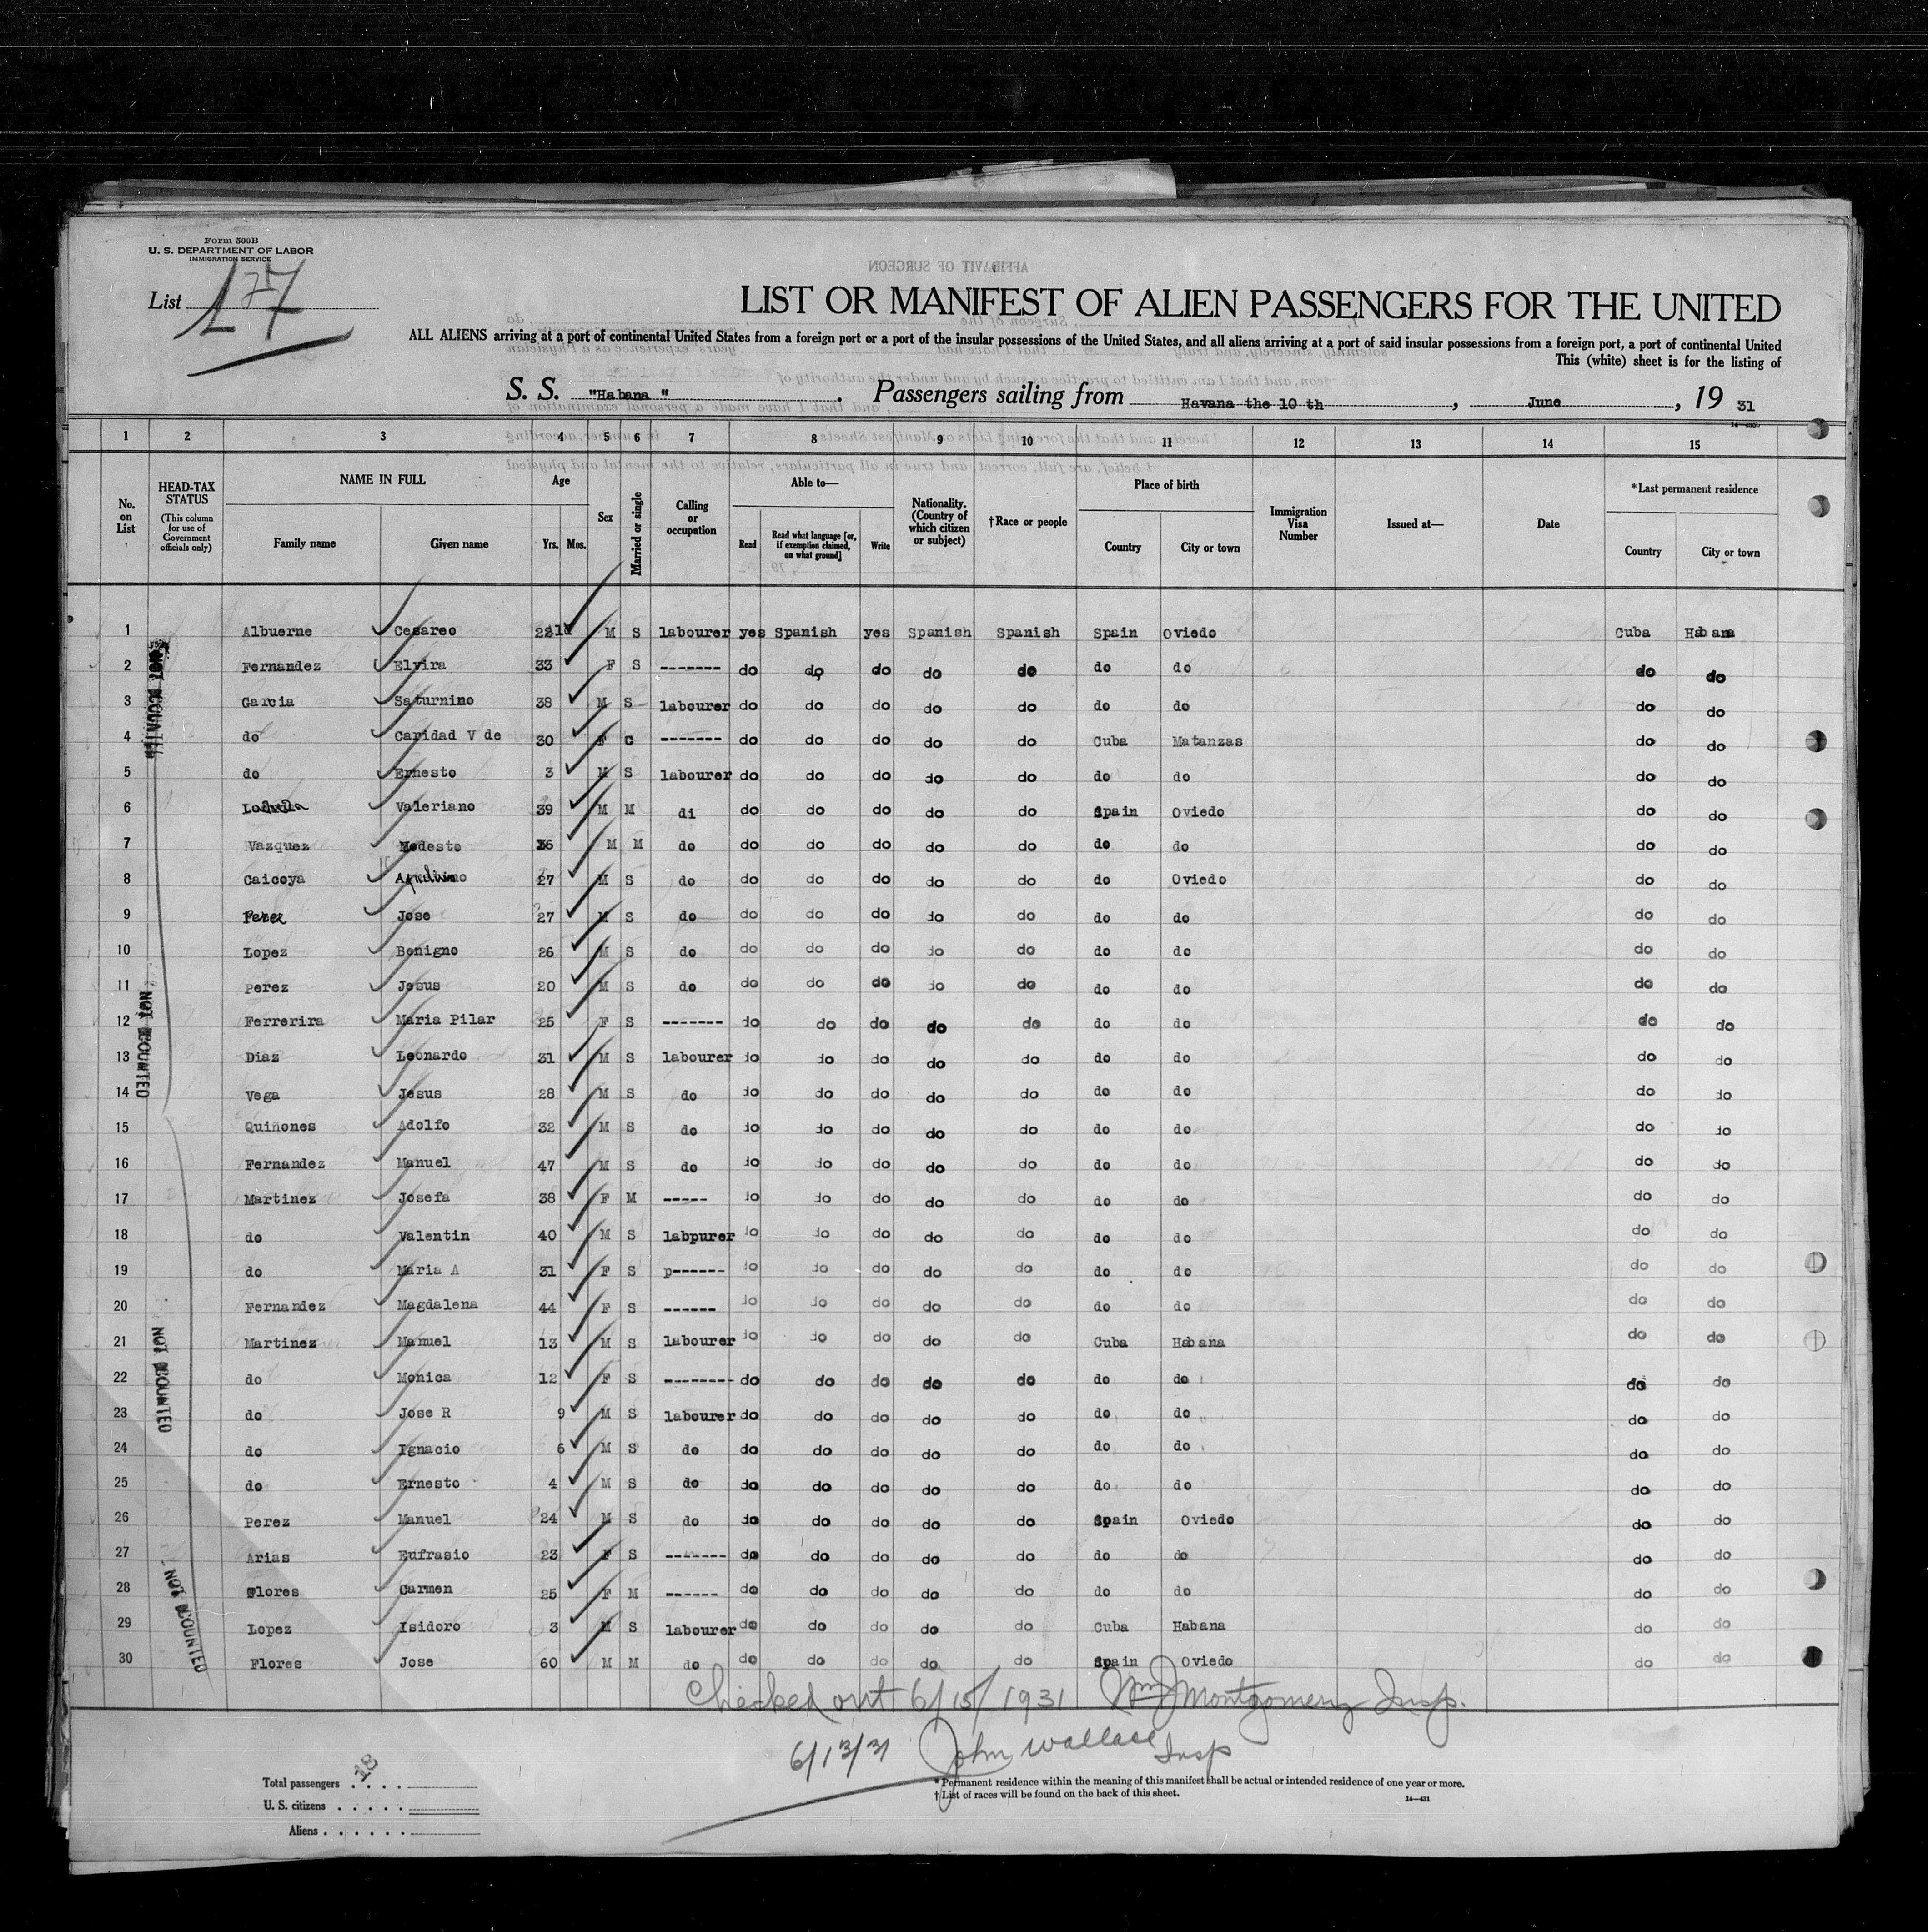 Form 500B
U. S. DEPARTMENT OF LABOR
IMMIGRATION SERVICE
List 177
AFFIDAVIT OF SURGEON
LIST OR MANIFEST OF ALIEN PASSENGERS FOR THE UNITED
ALL ALIENS arriving at a port of continental United States from a foreign port or a port of the insular possessions of the United States, and all aliens arriving at a port of said insular possessions from a foreign port, a port of continental United
This (white) sheet is for the listing of
S. S. "Habana" . Passengers sailing from Havana the 10 th , June , 19 31
1 2 3 4 5 6 7 8 9 10 11 12 13 14 15
No. on List HEAD-TAX STATUS (This column for use of Government officials only) NAME IN FULL Family name Given name Age Yrs. Mos. Sex Married or single Calling or occupation Able to— Read Read what language [or, if exemption claimed, on what ground] Write Nationality. (Country of which citizen or subject) †Race or people Place of birth Country City or town Immigration Visa Number Issued at— Date *Last permanent residence Country City or town
1 Albuerne Cesareo 22 M S labourer yes Spanish yes Spanish Spanish Spain Oviedo Cuba Habana
2 Fernandez Elvira 33 F S ------- do do do do do do do do do
3 Garcia Saturnino 38 M S labourer do do do do do do do do do
4 do Caridad V de 30 F C ------- do do do do do Cuba Matanzas do do
5 do Ernesto 3 M S labourer do do do do do do do do do
6 Valeriano 39 M M di do do do do do Spain Oviedo do do
7 Vazquez Modesto 36 M M do do do do do do do do do do
8 Caicoya Aquilino 27 M S do do do do do do do Oviedo do do
9 Perez Jose 27 M S do do do do do do do do do do
10 Lopez Benigno 26 M S do do do do do do do do do do
11 Perez Jesus 20 M S do do do do do do do do do do
12 Ferrerira Maria Pilar 25 F S ------- do do do do do do do do do
13 Diaz Leonardo 31 M S labourer do do do do do do do do do
14 Vega Jesus 28 M S do do do do do do do do do do
15 Quiñones Adolfo 32 M S do do do do do do do do do do
16 Fernandez Manuel 47 M S do do do do do do do do do do
17 Martinez Josefa 38 F M ----- do do do do do do do do do
18 do Valentin 40 M S labpurer do do do do do do do do do
19 do Maria A 31 F S p------ do do do do do do do do do
20 Fernandez Magdalena 44 F S ------ do do do do do do do do do
21 Martinez Manuel 13 M S labourer do do do do do Cuba Habana do do
22 do Monica 12 F S -------- do do do do do do do do do
23 do Jose R 9 M S labourer do do do do do do do do do
24 do Ignacio 6 M S do do do do do do do do do do
25 do Ernesto 4 M S do do do do do do do do do do
26 Perez Manuel 24 M S do do do do do do Spain Oviedo do do
27 Arias Eufrasio 23 F S ------- do do do do do do do do do
28 Flores Carmen 25 F M ------ do do do do do do do do do
29 Lopez Isidoro 3 M S labourer do do do do do Cuba Habana do do
30 Flores Jose 60 M M do do do do do do Spain Oviedo do do
NOT COUNTED
NOT COUNTED
NOT COUNTED
NOT COUNTED
Checked out 6/15/1931 Wm J Montgomery Insp.
6/13/31 John Wallace Insp
Total passengers . . . . 18
U. S. citizens . . . . .
Aliens . . . . . .
* Permanent residence within the meaning of this manifest shall be actual or intended residence of one year or more.
† List of races will be found on the back of this sheet.
14—431